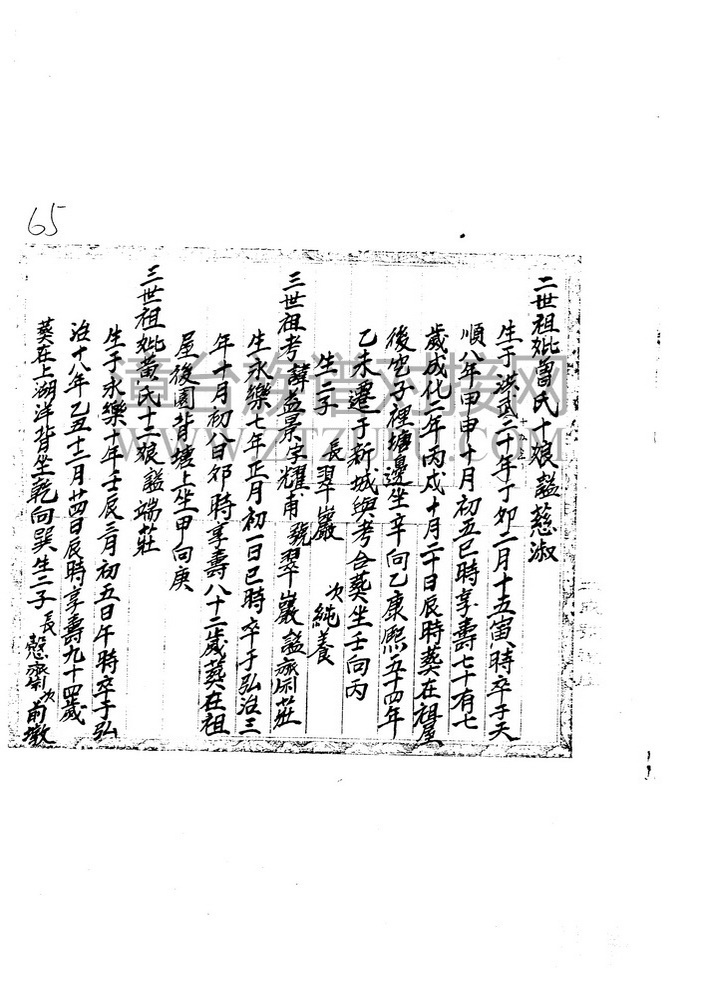 65
二世祖妣曾氏十娘謚慈淑
生于洪武二十年丁卯二月十五寅時卒于天
順八年甲申十月初五巳時享壽七十有七
歲成化二年丙戌十月二十日辰時葬在祖屋
後窀子裡塘邊坐辛向乙康熙五十四年
乙未遷于新城與考合葬坐壬向丙
生二子 長翠巖 次純養
三世祖考諱益景字耀甫號翠巖謚齋莊
生永樂七年正月初一日巳時卒于弘治三
年十月初八日卯時享壽八十二歲葬在祖
屋後園背壙上坐甲向庚
三世祖妣黃氏十二娘謚端莊
生于永樂十年壬辰三月初五日午時卒于弘
治十八年乙丑十二月廿四日辰時享壽九十四歲
葬在上湖洋背坐乾向巽生二子 長慤齋 次前墩
漳台族谱对接网
WWW.ZTZUPU.COM